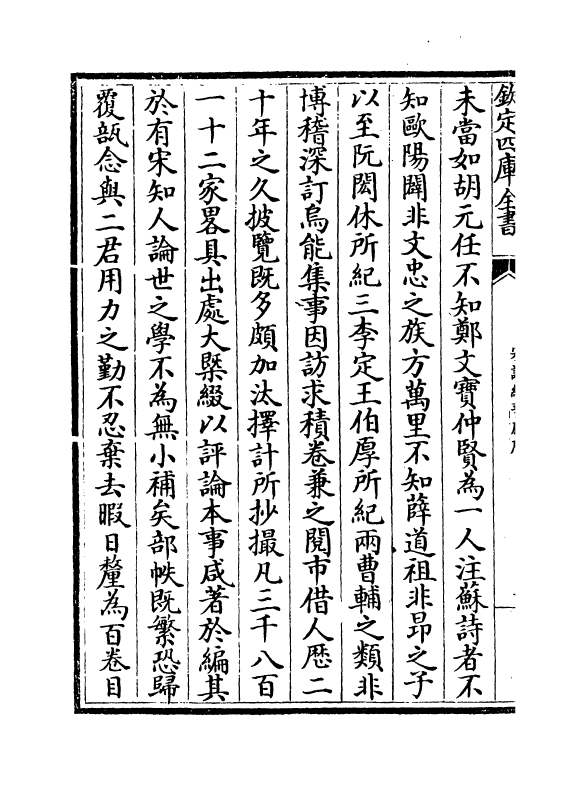 欽定四庫全書
未當如胡元任不知鄭文寶仲賢為一人注蘇詩者不
知歐陽闢非文忠之族方萬里不知薛道祖非昂之子
以至阮閎休所紀三李定王伯厚所紀兩曹輔之類非
博稽深訂烏能集事因訪求積卷兼之閱市借人歴二
十年之久披覽既多頗加汰擇計所抄撮凡三千八百
一十二家畧具出處大槩綴以評論本事咸著於編其
於有宋知人論世之學不為無小補矣部帙既繁恐歸
覆瓿念與二君用力之勤不忍棄去暇日釐為百卷目